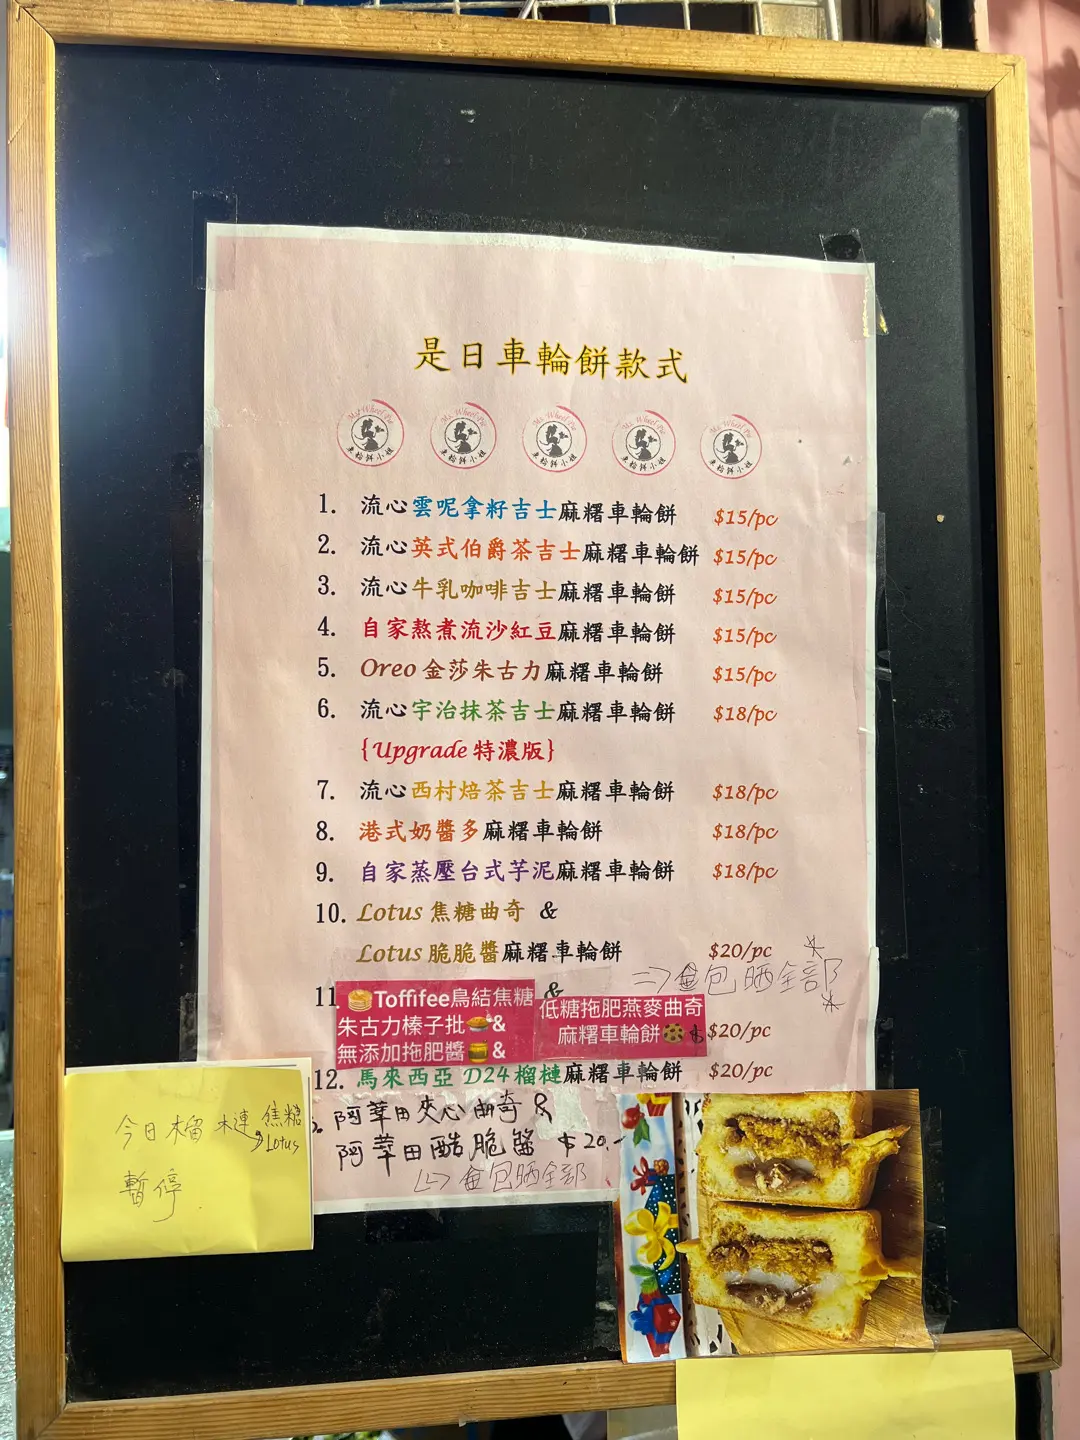 是日車輪餅款式
Ms Wheel Pie Ms Wheel Pie Ms Wheel Pie Ms Wheel Pie Ms Wheel Pie
車輪餅小姐 車輪餅小姐 車輪餅小姐 車輪餅小姐 車輪餅小姐
1. 流心雲呢拿籽吉士麻糬車輪餅 $15/pc
2. 流心英式伯爵茶吉士麻糬車輪餅 $15/pc
3. 流心牛乳咖啡吉士麻糬車輪餅 $15/pc
4. 自家熬煮流沙紅豆麻糬車輪餅 $15/pc
5. Oreo 金莎朱古力麻糬車輪餅 $15/pc
6. 流心宇治抹茶吉士麻糬車輪餅 $18/pc
{Upgrade 特濃版}
7. 流心西村焙茶吉士麻糬車輪餅 $18/pc
8. 港式奶醬多麻糬車輪餅 $18/pc
9. 自家蒸壓台式芋泥麻糬車輪餅 $18/pc
10. Lotus 焦糖曲奇 &
Lotus 脆脆醬麻糬車輪餅 $20/pc
包晒全部
11 Toffifee鳥結焦糖 &
朱古力榛子批&
無添加拖肥醬&
低糖拖肥燕麥曲奇
麻糬車輪餅 $ $20/pc
12. 馬來西亞 D24 榴槤麻糬車輪餅 $20/pc
阿華田夾心曲奇 &
阿華田酷脆醬 $20.-
包晒全部
今日榴槤, 焦糖
Lotus
暫停.